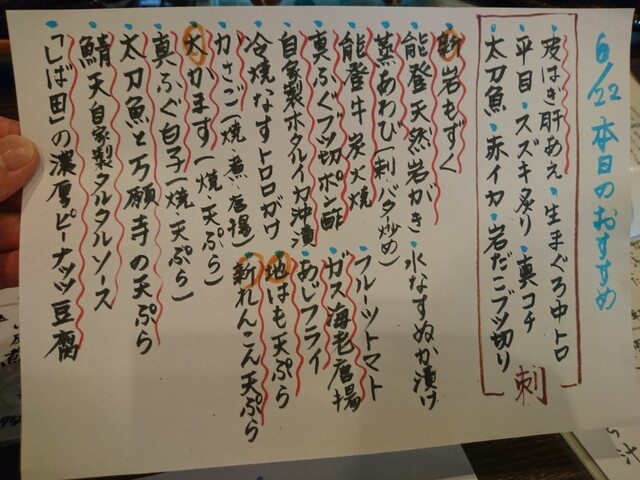 6/22 本日のおすすめ
皮はぎ肝あえ・生まぐろ中トロ
・平目・スズキ炙り・真コチ
太刀魚・赤イカ・岩だこブツ切り
刺
新岩もずく
・能登天然岩がき・水なすぬか漬け
・蒸あわび(刺・バタ炒め)
・能登牛炭火焼・フルーツトマト
・真ふぐブツ切ポン酢・ガス海老唐揚
・自家製ホタルイカ沖漬・あじフライ
・冷焼なすトロロがけ・地はも天ぷら
・かさご(焼・煮・唐揚)・新れんこん天ぷら
・大かます(焼・天ぷら)
・真ふぐ白子(焼・天ぷら)
・太刀魚と万願寺の天ぷら
・鯖天自家製タルタルソース
・「しば田」の濃厚ピーナッツ豆腐